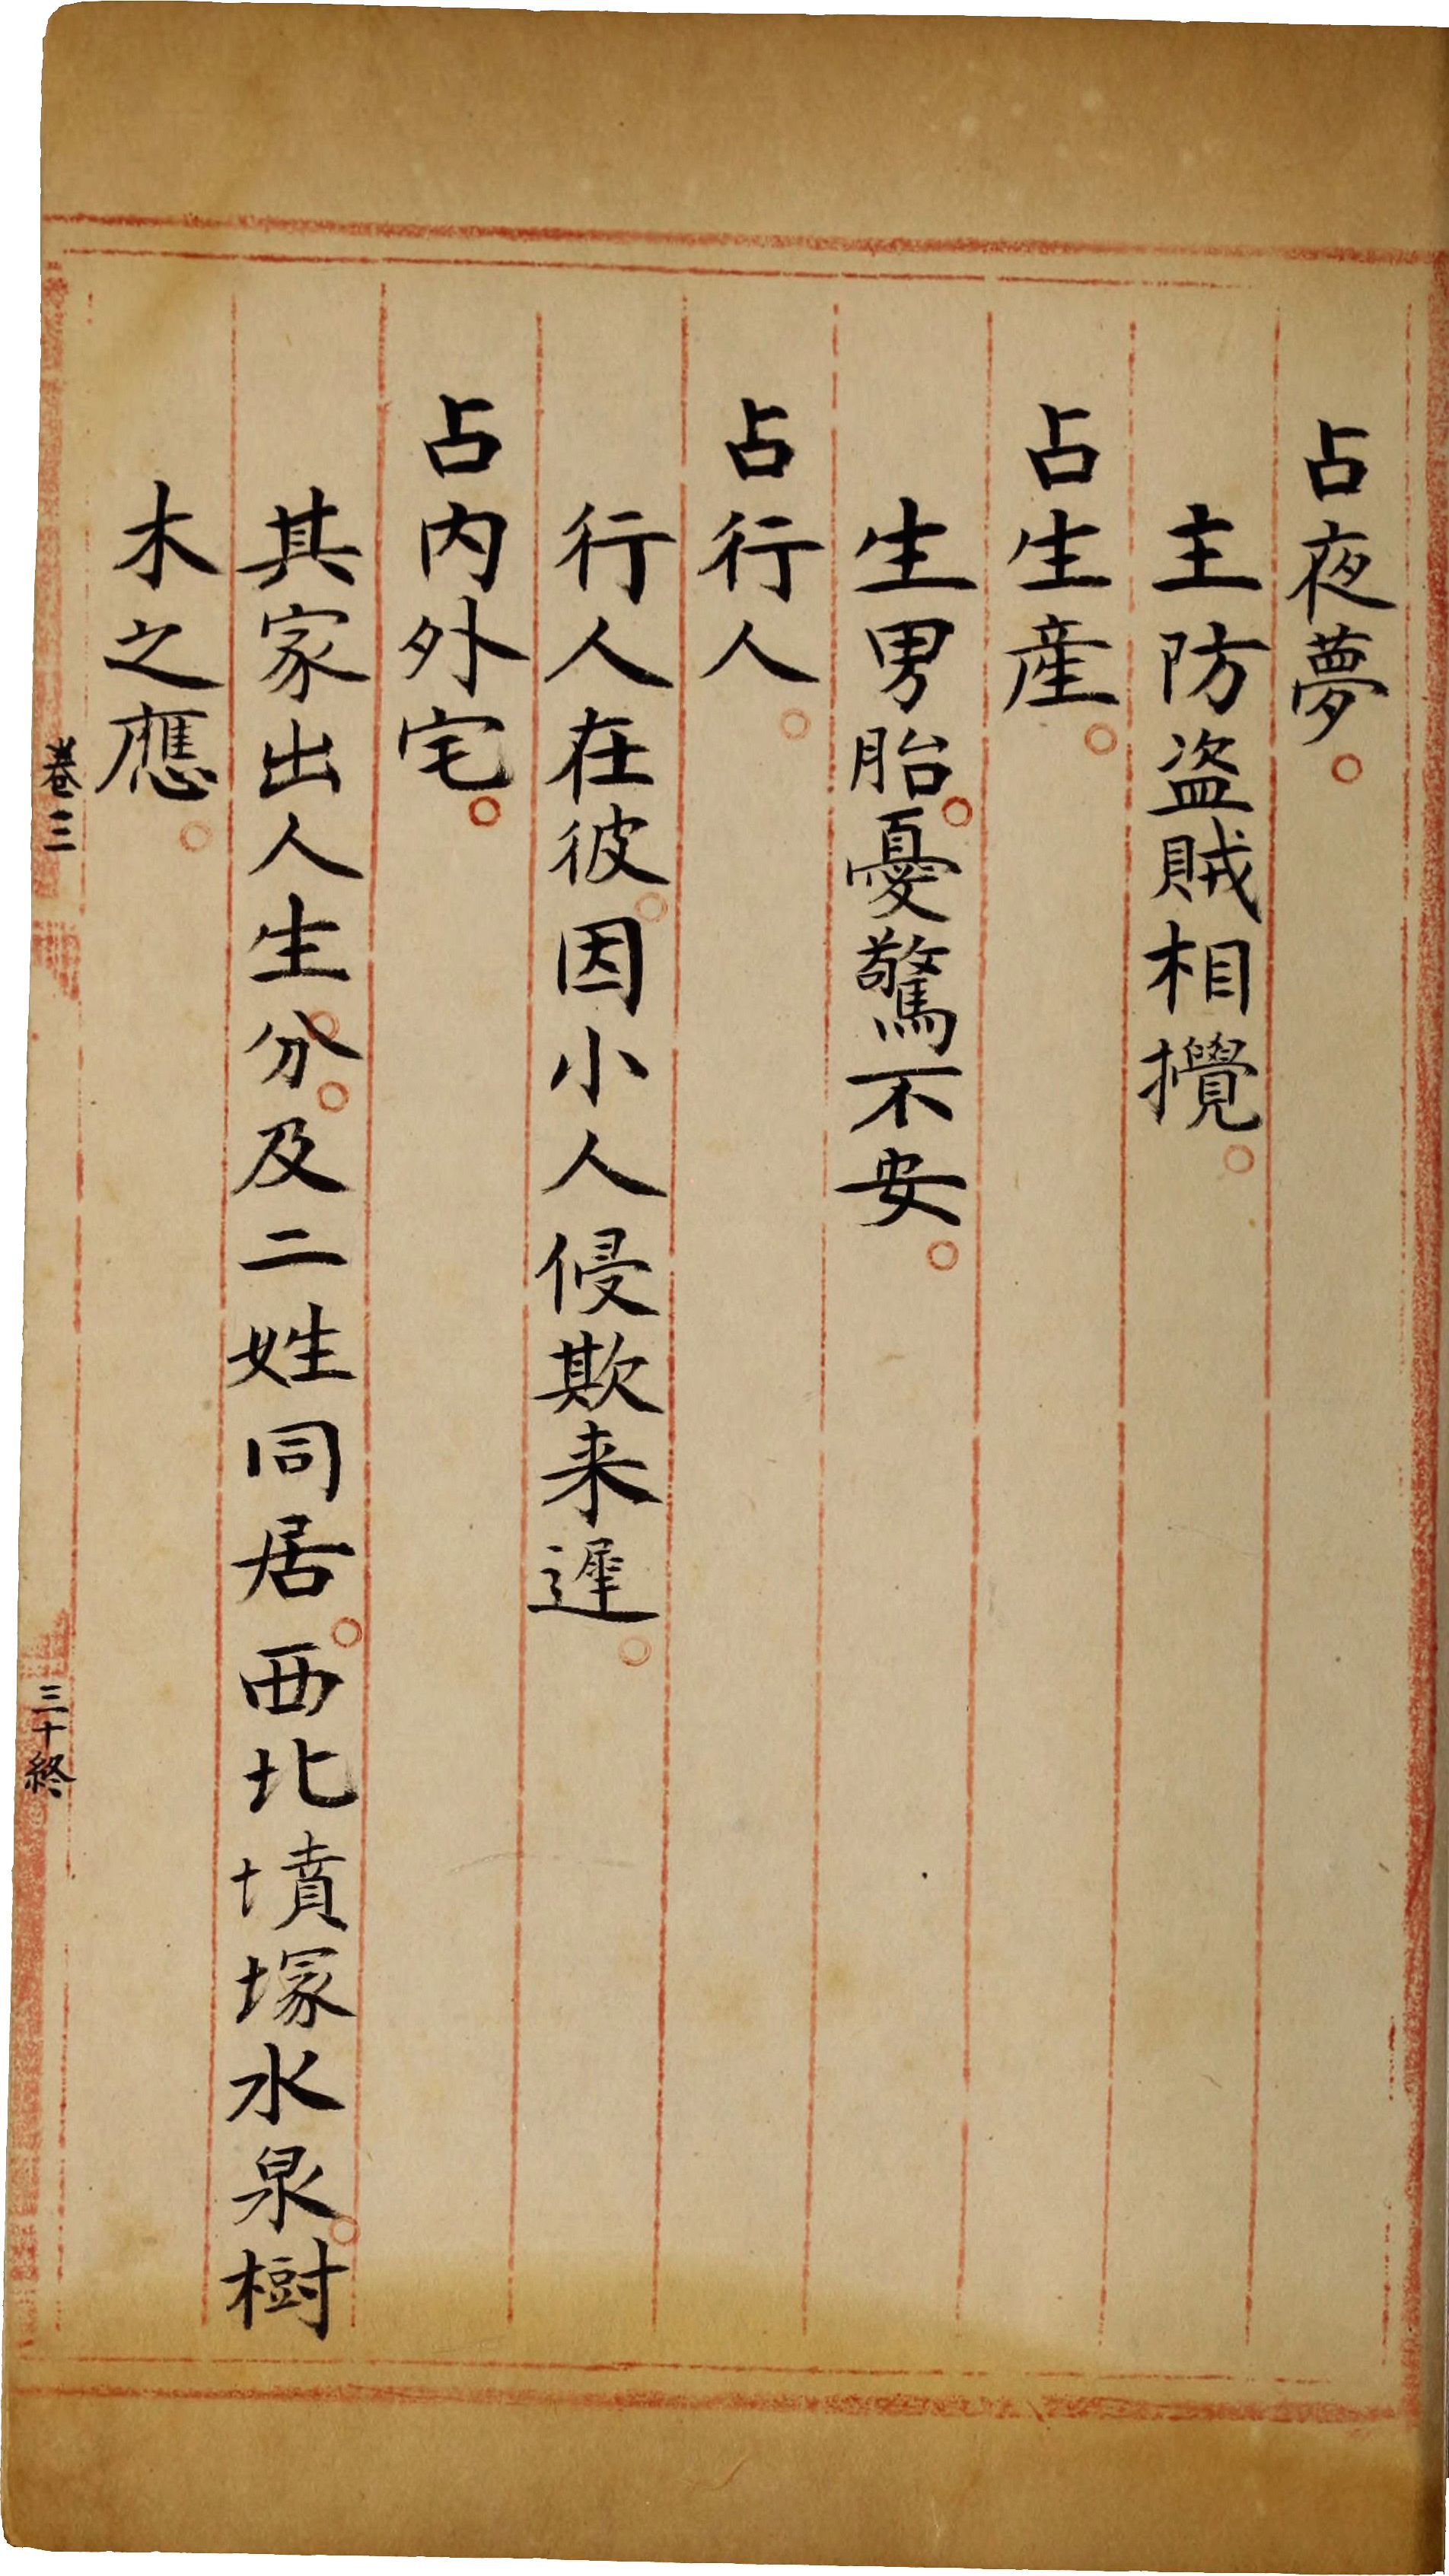 占夜夢。
主防盗賊相攪。
占生産。
生男胎。憂驚不安。
占行人。
行人在彼。因小人侵欺来遲。
占内外宅。
其家出人生分。及二姓同居。西北墳塚水泉。樹
木之應。
卷三
三十終